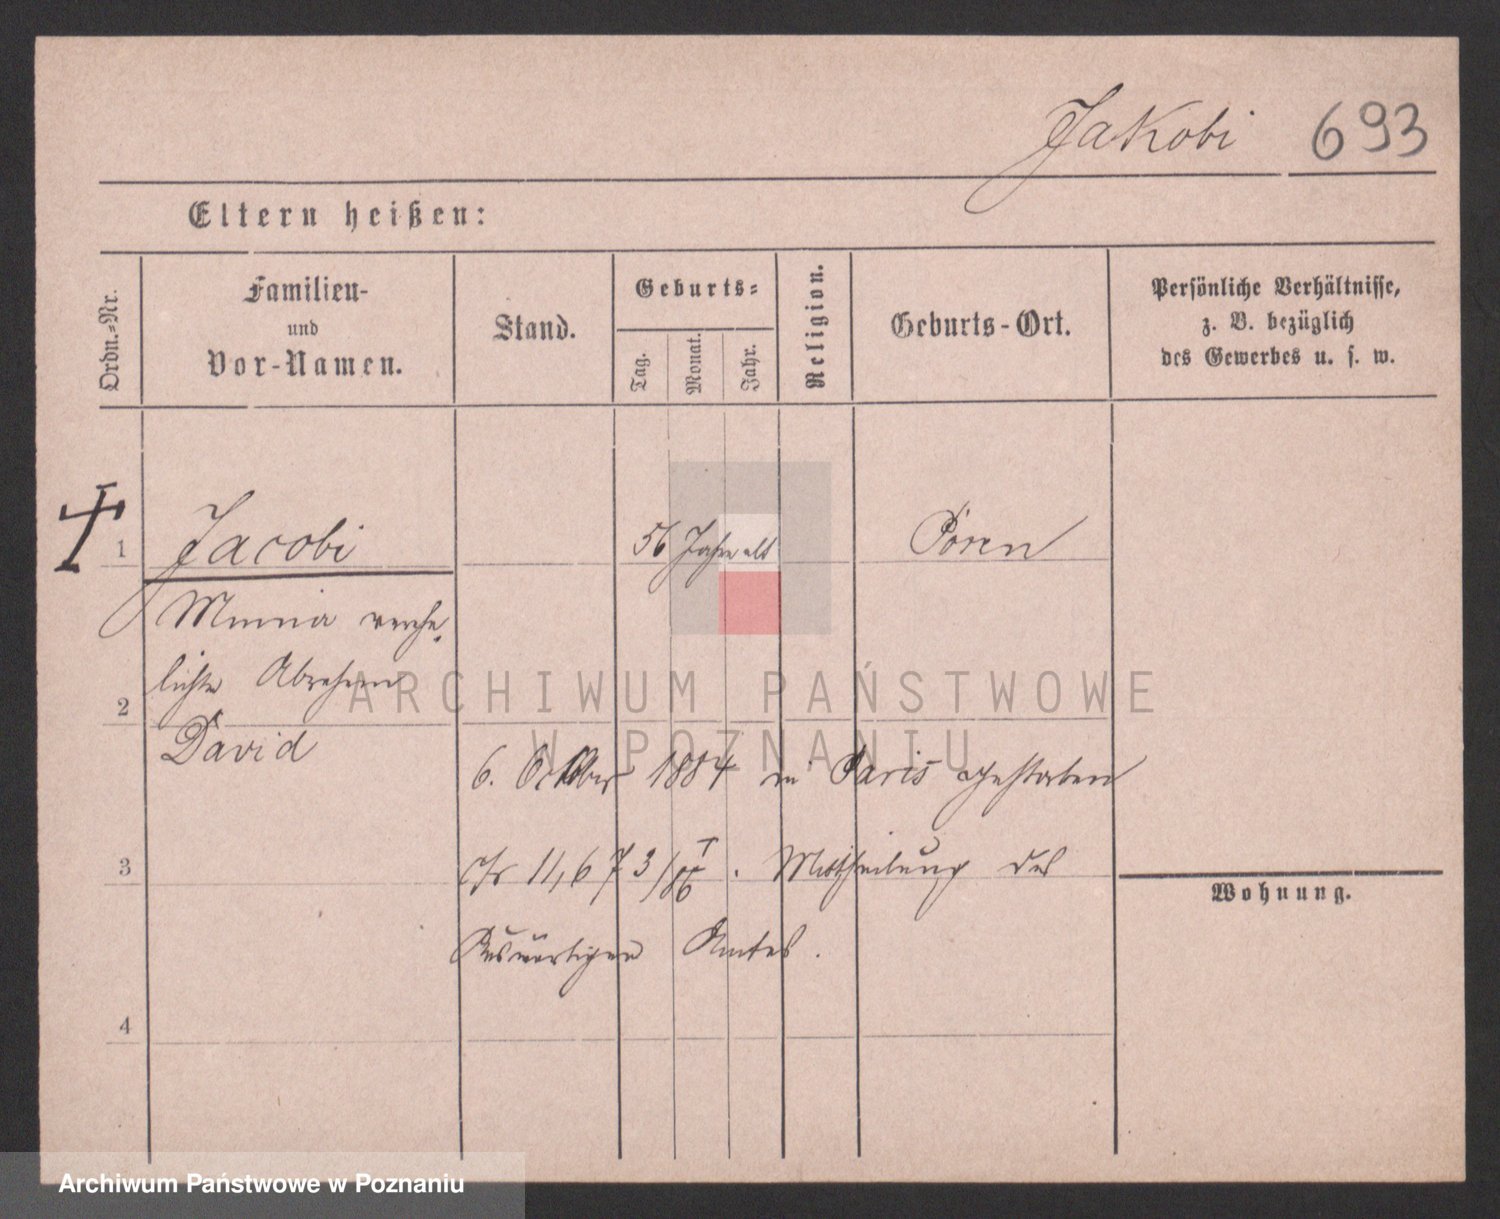 Jakobi 693
Eltern heißen:
Ordn.-Nr.
Familien-
und
Vor-Namen.
Stand.
Geburts-
Tag.
Monat.
Jahr.
Religion.
Geburts-Ort.
Persönliche Verhältnisse,
z. B. bezüglich
des Gewerbes u. s. w.
1 Jacobi 56 Jahre alt
Minna verehe-
lichte Abraham
2
David
ARCHIWUM PAŃSTWOWE
W POZNANIU
6. October 1884 in Paris gestorben
3
11,673/86 I. Mittheilung des
Wohnung.
Auswärtigen Amtes.
4
Archiwum Państwowe w Poznaniu